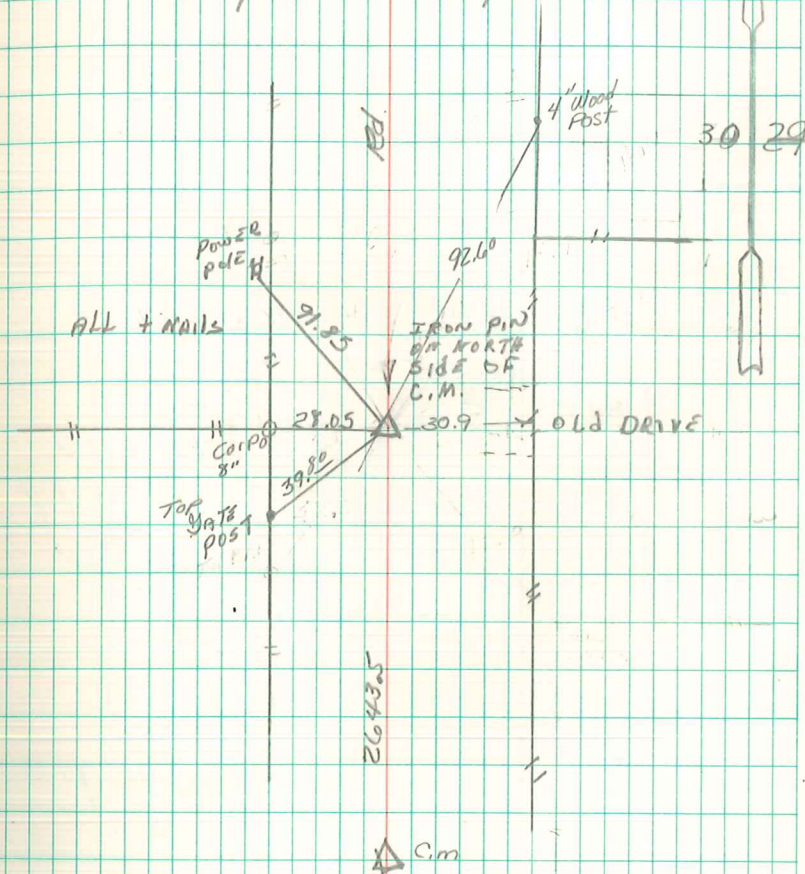 Rd
4" Wood
Post
30 29
POWER
POLE
92.60
91.85
ALL + NAILS
IRON PIN
ON NORTH
SIDE OF
C.M.
28.05
30.9
OLD DRIVE
8"
39.80
TOP
GATE
POST
2643.5
C.M